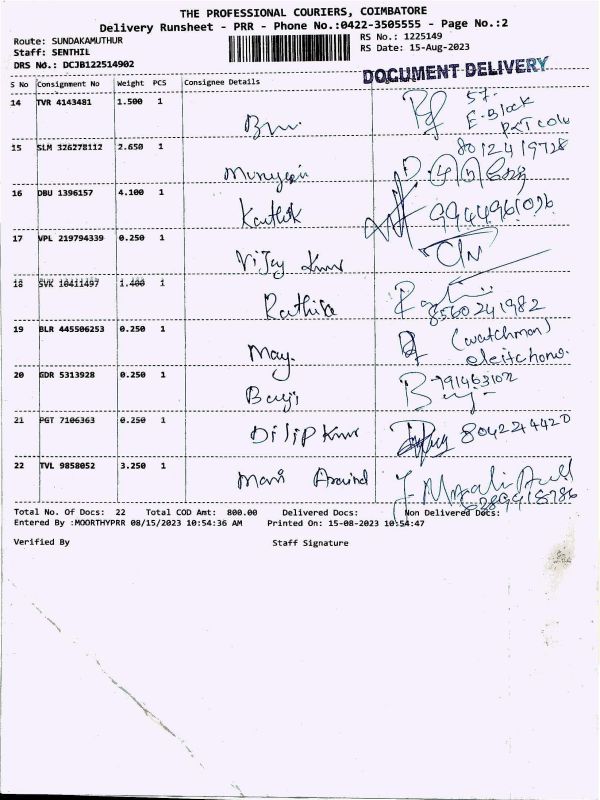 THE PROFESSIONAL COURIERS, COIMBATORE
Delivery Runsheet - PRR - Phone No.:0422-3505555 - Page No.:2
Route: SUNDAKAMUTHUR
RS No.: 1225149
Staff: SENTHIL
RS Date: 15-Aug-2023
DRS No.: DCJB122514902
DOCUMENT DELIVERY
S No Consignment No Weight PCS Consignee Details
14 TVR 4143481 1.500 1
57.
E-Block
15 SLM 326278112 2.650 1
8012419728
16 DBU 1396157 4.100 1 Karthik
9944961096
17 VPL 219794339 0.250 1 Vijay Kmr
18 SVK 10411497 1.400 1 Rathika
8560241982
19 BLR 445506253 0.250 1 May. (watchman)
20 GDR 5313928 0.250 1
21 PGT 7106363 0.250 1 Dilip Kmr 8042244420
22 TVL 9858052 3.250 1 Mani Aravind
Total No. Of Docs: 22 Total COD Amt: 800.00 Delivered Docs: Non Delivered Docs:
Entered By :MOORTHYPRR 08/15/2023 10:54:36 AM Printed On: 15-08-2023 10:54:47
Verified By Staff Signature